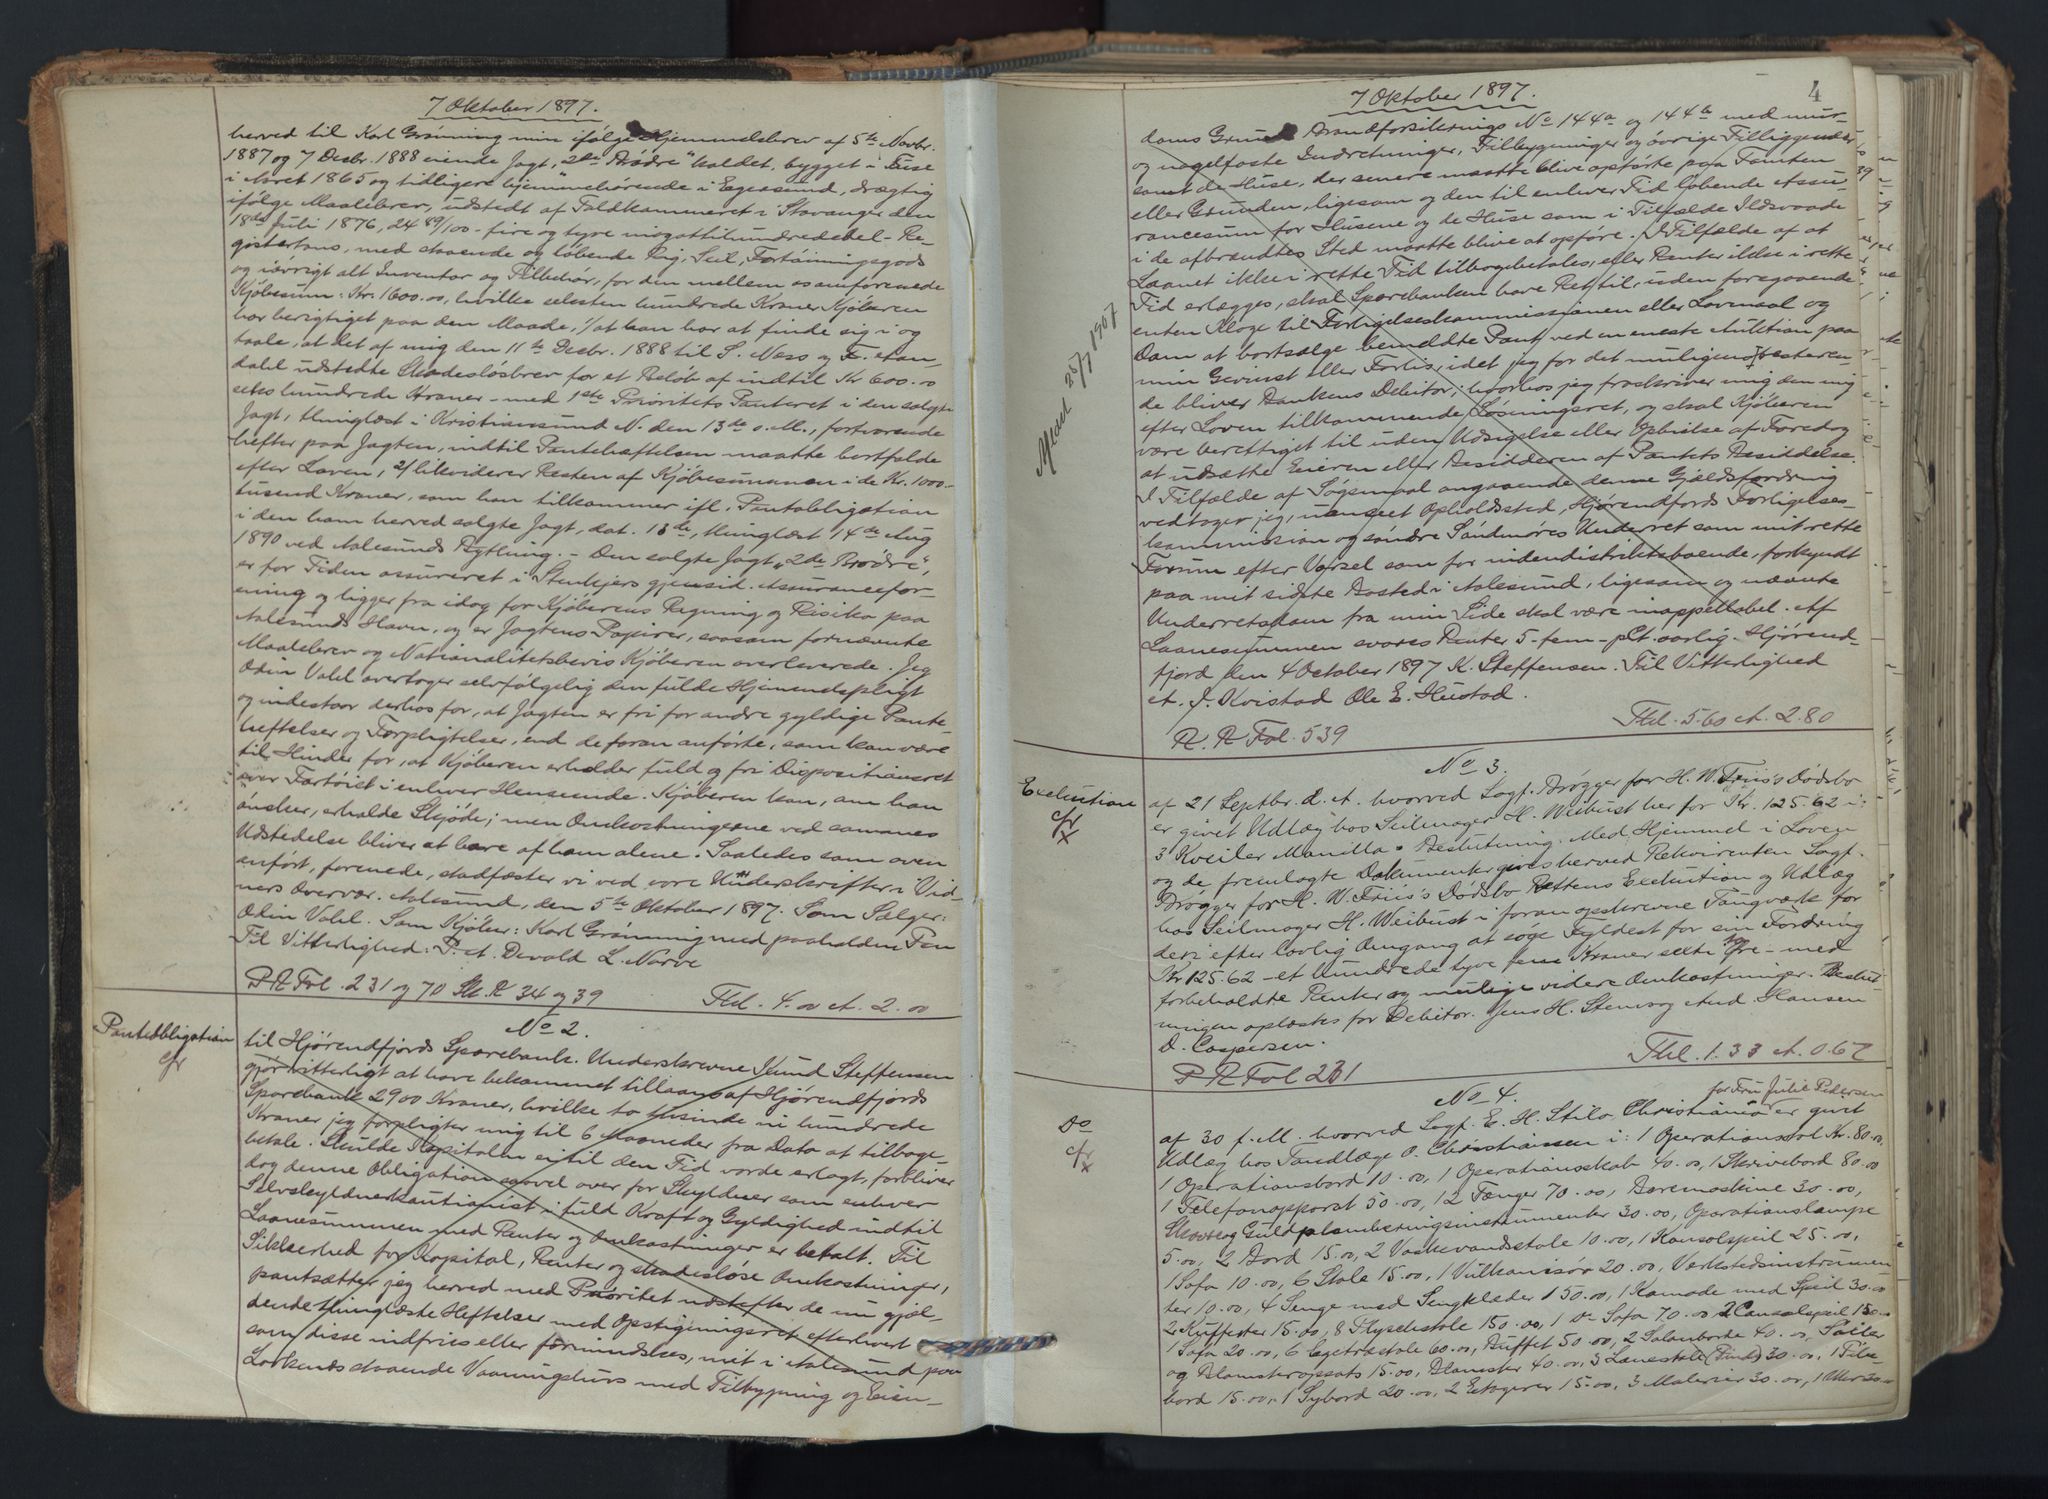 7 Oktober 1897.
herved til Karl Grønning min ifølge Hjemmelsbrev af 5te Novbr.
1887 og 7 Decbr. 1888 eiende Jagt, "2de Brødre" kaldet, bygget i Fuse
i Aaret 1865 og tidligere hjemmehørende i Egersund, drægtig
ifølge Maalebrev, udstedt af Toldkammeret i Stavanger den
18de Juli 1876, 24 89/100 - fire og tyve niogottihundrededel - Re-
gistertons, med staaende og løbende Rig, Seil, Fortøiningsgods
og iøvrigt alt Inventar og Tilbehør, for den mellem os omforenede
Kjøbesum: Kr. 1600.00, hvilke seksten hundrede Kroner Kjøberen
har berigtiget paa den Maade, 1/ at han har at finde sig i og
taale, at det af mig den 11te Decbr. 1888 til S. Ness og
dahl udstedte Skadesløsbrev for et Beløb af indtil Kr 600.00
seks hundrede Kroner - med 1ste Prioritets Panteret i den solgte
Jagt, thinglæst i Kristiansund N. den 13de s. M., fortvarende
hefter paa Jagten, indtil Pantehæftelsen maatte bortfalde
efter Loven, 2/ likviderer Resten af Kjøbesummen i de Kr. 1000.-
tusend Kroner, som han tilkommer ifl. Pantobligation
i den ham herved solgte Jagt, dat. 13de, thinglæst 14de Aug
1890 ved Aalesunds Bything. - Den solgte Jagt "2de Brødre",
er for Tiden assureret i Stenkjers gjensid. Assurancefor-
ening og ligger fra idag for Kjøberens Regning og Risiko paa
Aalesunds Havn, og er Jagtens Papirer, saasom fornævnte
Maalebrev og Nationalitetsbevis Kjøberen overleverede. Jeg
Odin Vahl overtager selvfølgelig den fulde Hjemmelspligt
og indestaar derhos for, at Jagten er fri for andre gyldige Pante-
heftelser og Forpligtelser, end de foran anførte, som kan være
til Hinder for, at Kjøberen erholder fuld og fri Dispositionsret
over Fartøiet i enhver Henseende. Kjøberen kan, om han
ønsker, erholde Skjøde; men Omkostningerne ved sammes
Udstedelse bliver at bære af ham alene. Saaledes som oven
anført, forenede, stadfæster vi ved vore Underskrifter i Vid-
ners Overvær. Aalesund, den 5te Oktober 1897. Som Sælger:
Odin Vahl. Som Kjøber: Karl Grønning med paaholden Pen
Til Vitterlighed: P. A. Devold L. Narve
P R Fol. 231 og 70 Sk. R 34 og 39 Thl. 4.00 A. 2.00
Pantobligation
cfr
No 2.
til Hjørendfjords Sparebank. Underskrevne Knud Steffensen
gjør vitterligt at have bekommet tillaans af Hjørendfjords
Sparebank 2900 Kroner, hvilke to tusinde ni hundrede
Kroner jeg forpligter mig til 6 Maaneder fra Dato at tilbage-
betale. Skulde Kapitalen ei til den Tid vorde erlagt, forbliver
dog denne Obligation saavel over for Skyldner som enhver
Selvskyldnerkautionist i fuld Kraft og Gyldighed indtil
Laanesummen med Renter og Omkostninger er betalt. Til
Sikkerhed for Kapital, Renter og skadesløse Omkostninger,
pantsætter jeg herved med Prioritet næstefter de nu gjæl-
dende thinglæste Heftelser med Opstigningsret efterhvert
som disse indfries eller formindskes, mit i Aalesund paa
Lorkenæs staaende Vaaningshus med Tilbygning og Eien-
4
7 Oktober 1897.
doms Grund Brandforsikrings No 144a og 144b med mur-
og nagelfaste Indretninger, Tilbygninger og øvrige Tilliggender
samt de Huse, der senere maatte blive opførte paa Tomten
eller Grunden, ligesom og den til enhver Tid løbende Assu-
rancesum for Husene og de Huse som i Tilfælde Ildsvaade
i de afbrændtes Sted maatte blive at opføre. I Tilfælde af at
Laanet ikke i rette Tid tilbagebetales, eller Renter ikke i rette
Tid erlægges, skal Sparebanken have Ret til, uden foregaaende
enten Klage til Forligelseskommissionen eller Lovmaal og
Dom at bortsælge bemeldte Pant ved en eneste Auktion paa
min Gevinst eller Forlis, idet jeg for det muligens resteren-
de bliver Bankens Debitor; hvorhos jeg fraskriver mig den mig
efter Loven tilkommende Løsningsret, og skal Kjøberen
være berettiget til uden Udsigelse eller Opbielse af Faredag
at udsætte Eieren eller Besidderen af Pantets Besiddelse.
I Tilfælde af Søgsmaal angaaende denne Gjældsfordring
vedtager jeg, uanseet Opholdssted, Hjørendfjords Forligelses-
kommission og søndre Søndmøres Underret som mit rette
Forum efter Varsel som for indendistriktsboende, forkyndt
paa mit sidste Bosted i Aalesund, ligesom og nævnte
Underretsdom fra min Side skal være inappellabel. Af
Laanesummen svares Renter 5 - fem - pCt. aarlig. Hjørend-
fjord den 4 October 1897 K. Steffensen. Til Vitterlighed
A. J. Kvistad Ole E. Hustad.
R. R Fol. 539 Thl. 5.60 A. 2.80
Aflæst 25/7 1907
Exekution
cfr
x
No 3.
af 21 Septbr. d. A. hvorved Sagf. Brøgger for H. W. Friis's Dødsbo
er givet Udlæg hos Seilmager H. Weibust her for Kr. 125.62 i:
3 Kveiler Manilla. Beslutning. Med Hjemmel i Loven
og de fremlagte Dokumenter gives herved Rekvirenten Sagf.
Brøgger for H. W. Friis's Dødsbo Rettens Exekution og Udlæg
hos Seilmager H. Weibust i foran opskrevne Taugværk for
deri efter lovlig Omgang at søge Fyldest for sin Fordring
Kr 125.62 - et hundrede tyve fem Kroner seksti to Øre - med
forbeholdte Renter og mulige videre Omkostninger. Beslut-
ningen oplæstes for Debitor. Jens H. Stensø And. Hansen
D. Caspersen.
P R Fol 231 Thl. 1.33 A. 0.67
Do
cfr
x
No 4.
for Fru Julie Pedersen
af 30 f. M. hvorved Sagf. E. H. Stilo, Christiania er givet
Udlæg hos Tandlæge O. Christianssen i: 1 Operationsstol Kr. 80.00,
1 Operationsbord 10.00, 1 Operationsskab 40.00, 1 Skrivebord 80.00
1 Telefonapparat 50.00, 12 Tænger 70.00, Boremaskine 30.00,
Skab og Guldplomberingsinstrumenter 30.00, Operationslampe
5.00, 2 Bord 15.00, 2 Vaskevandsstole 10.00, 1 Konsolspeil 25.00,
1 Sofa 10.00, 6 Stole 15.00, 1 Vulkanisør 20.00, Verkstedsinstrumen-
ter 10.00, 4 Senge med Sengklæder 150.00, 1 Komode med Speil 30.00
2 Kufferter 15.00, 8 Plyschstole 150.00, 1 do Sofa 70.00 2 Consolspeil 150.00
1 Sofa 20.00, 6 Egetræstole 60.00, Buffet 50.00, 2 Salonborde 40.00,
og Blomsteropsats 15.00, Blomster 40.00, 3 Lænestole 30.00, 1
bord 15.00, 1 Sybord 20.00, 2 Etagerer 15.00, 3 Malerier 30.00, 1 Uhr 30.00